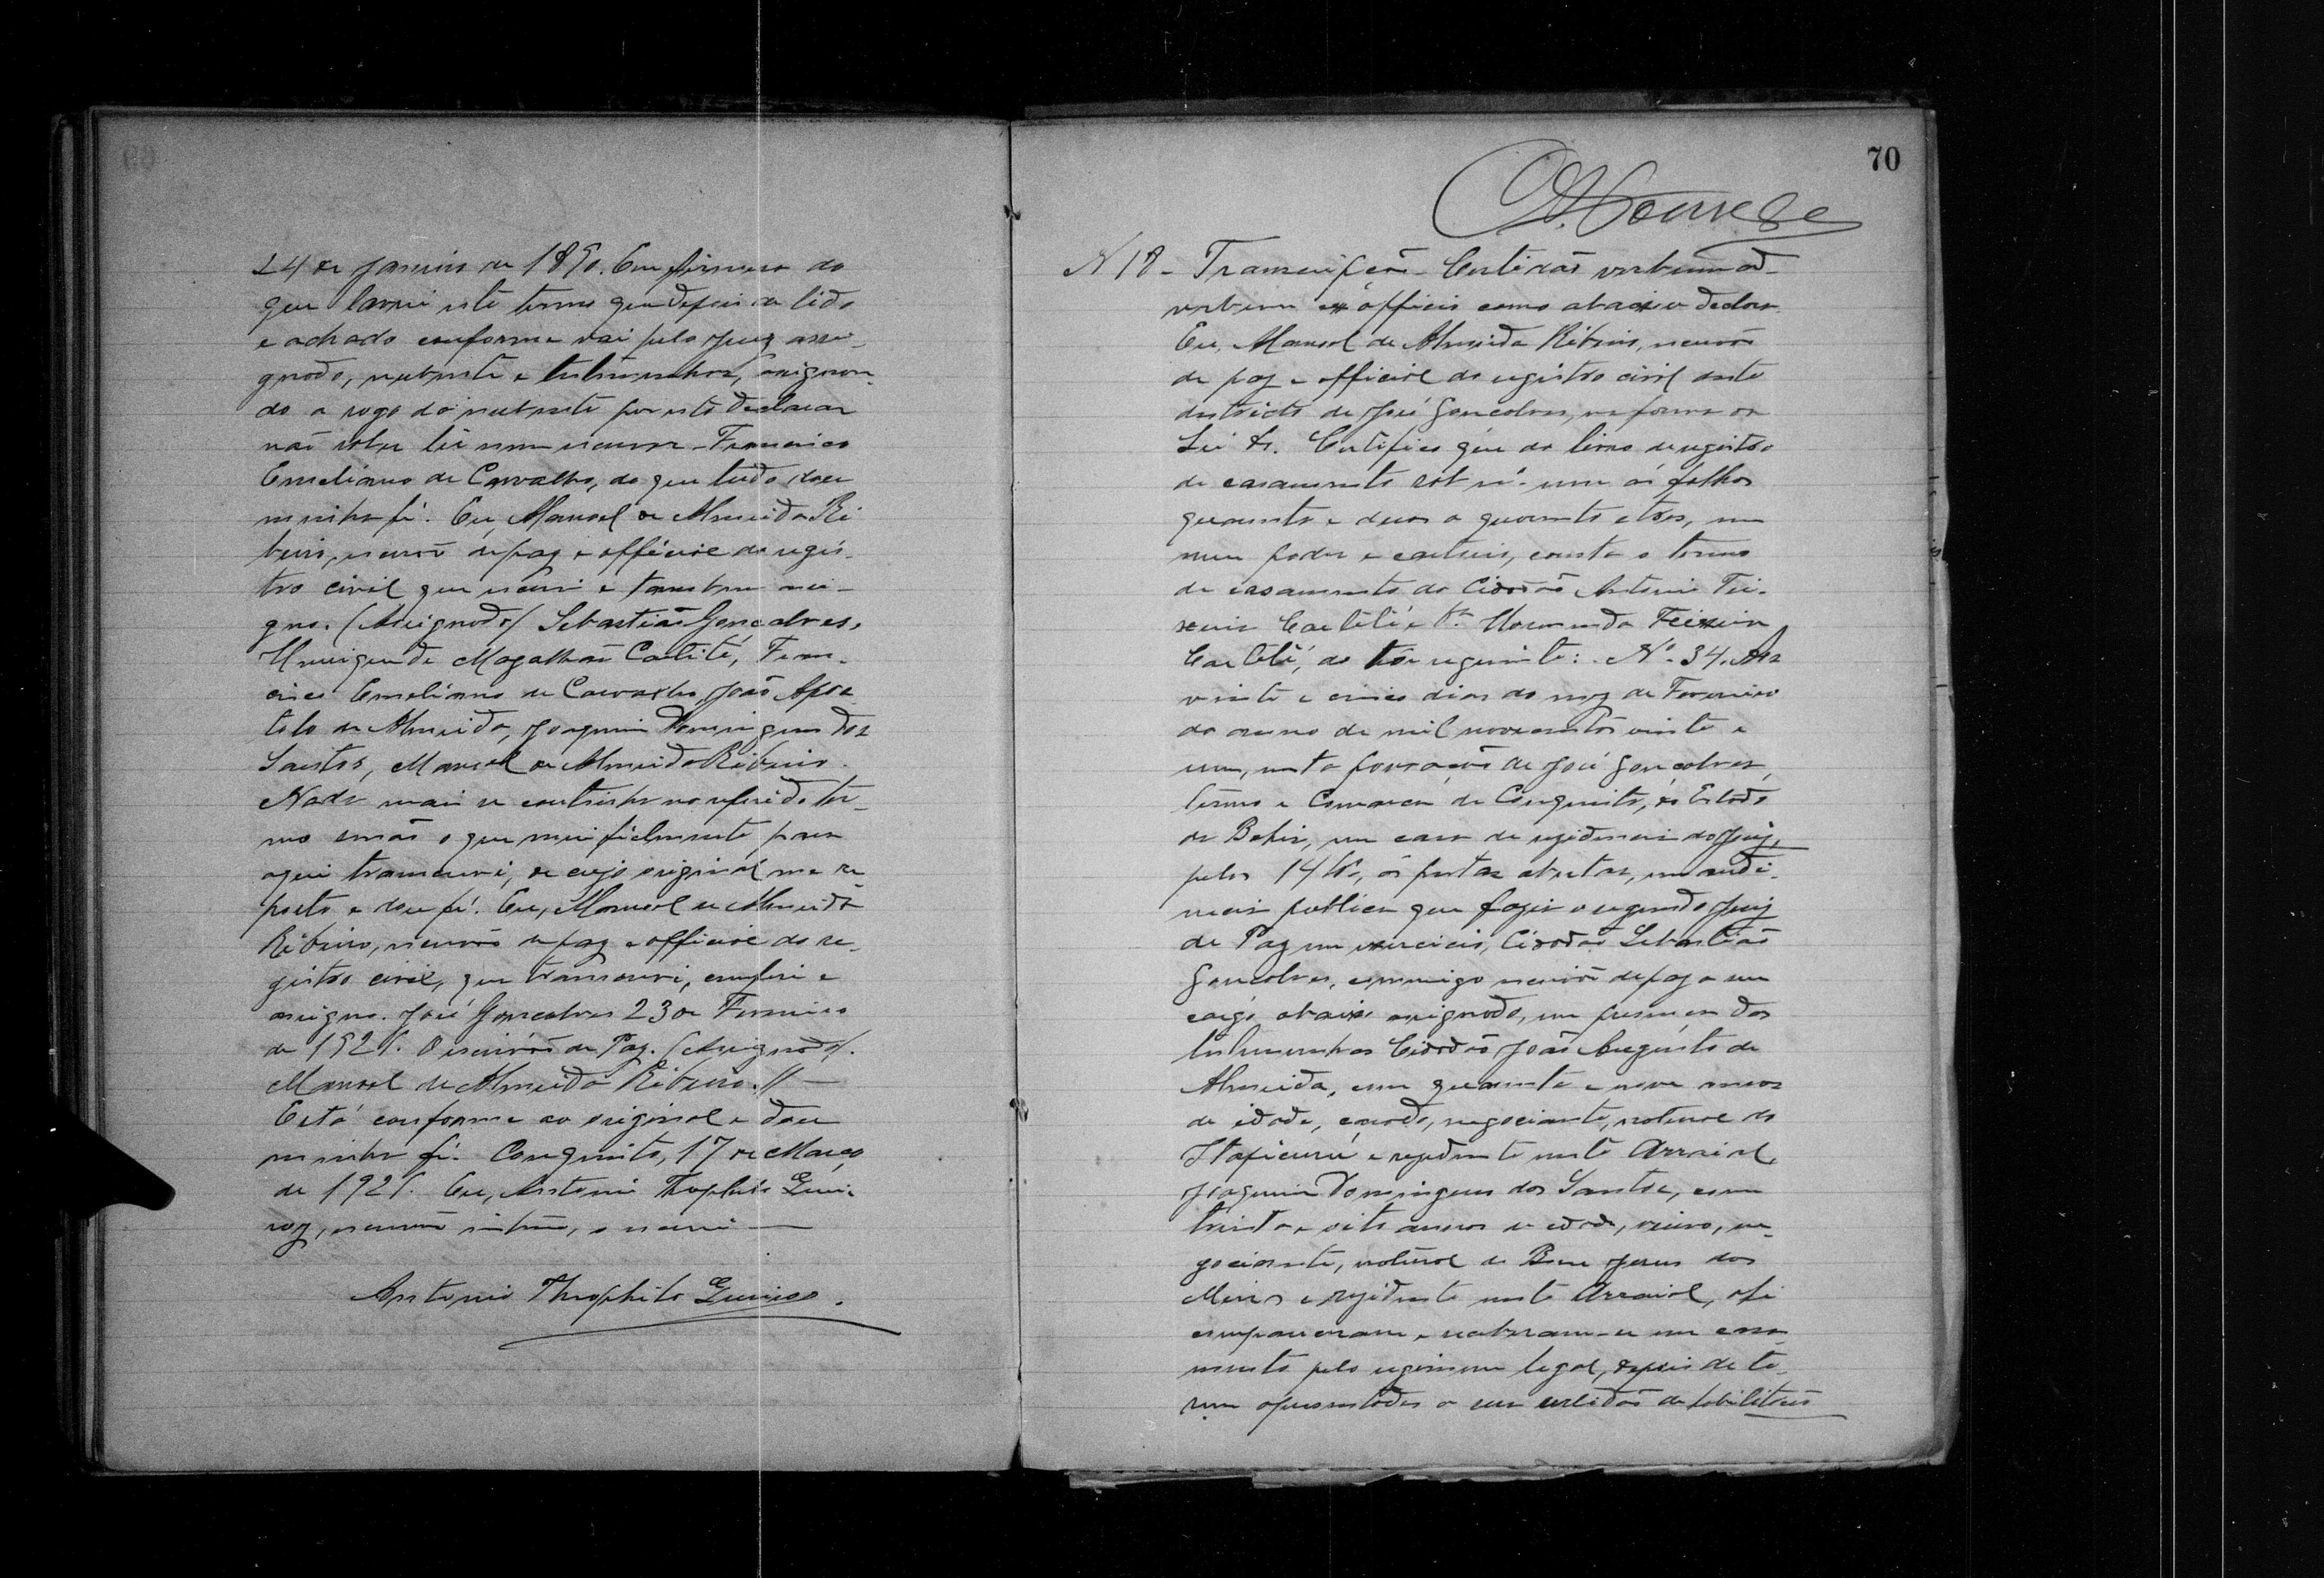 24 de Janeiro de 1890. Em firmeza do
que lavrei este termo que depois de lido
e achado conforme vai pelo Juiz assi-
gnado, nubente e testemunhas, assignan-
do a rogo do nubente por este declarar
não saber lêr nem escrever Francisco
Emeliano de Carvalho, do que tudo dou
minha fé. Eu, Manoel de Almeida Ri
beiro, escrivão de paz e official do regis-
tro civil que escrevi e tambem assi-
gno. (Assignado) Sebastião Gonçalves,
de Magalhães Caetité, Fran-
cisco Emeliano de Carvalho, João
de Almeida, Joaquim Domingues dos
Santos, Manoel de Almeida Ribeiro.
Nada mais se continha no referido ter-
mo senão o que mui fielmente para
aqui transcrevi, de cujo original me re-
porto e dou fé. Eu, Manoel de Almeida
Ribeiro, escrivão de paz e official do re-
gistro civil, que transcrevi, conferi e
assigno. José Gonçalves 23 de Fevereiro
de 1921. O escrivão de Paz. (Assignado).
Manoel de Almeida Ribeiro. // —
Está conforme ao original e dou
minha fé. Conquista, 17 de Março
de 1921. Eu, Antonio Theophilo Quei-
roz, escrivão interino, o escrevi —
Antonio Theophilo Queiroz.
70
N 18 - Transcripção - Certidão verbum ad
verbum ex officio como abaixo declara
Eu, Manoel de Almeida Ribeiro, escrivão
de paz e official do registro civil deste
districto de José Gonçalves, na forma da
Lei &. Certifico que do livro de registro
de casamento sob nº um ás folhas
quarenta e duas a quarenta e tres, em
meu poder e cartorio, consta o termo
de casamento do Cidadão Antonio Tei-
xeira Caetité e D. Teixeira
Caetité, do teor seguinte: Nº 34. Aos
vinte e cinco dias do mez de Fevereiro
do anno de mil novecentos vinte e
um, nesta povoação de José Gonçalves,
termo e Comarca de Conquista, do Estado
da Bahia, em casa de residencia do Juiz,
pelas 14 hs, ás portas abertas, em audi-
encia publica que fazia o segundo Juiz
de Paz em exercicio, Cidadão Sebastião
Gonçalves, commigo escrivão de paz a seu
cargo abaixo assignado, em presença das
testemunhas Cidadão João Augusto de
Almeida, com quarenta e nove annos
de idade, casado, negociante, natural de
Itapicurú e residente neste Arraial,
Joaquim Domingues dos Santos, com
trinta e oito annos de edade, viuvo, ne-
gociante, natural de Bom Jesus dos
Meiras e residente neste Arraial, ahi
compareceram e receberam-se em casa-
mento pelo regimen legal, depois de te-
rem apresentado a sua certidão de habilitação